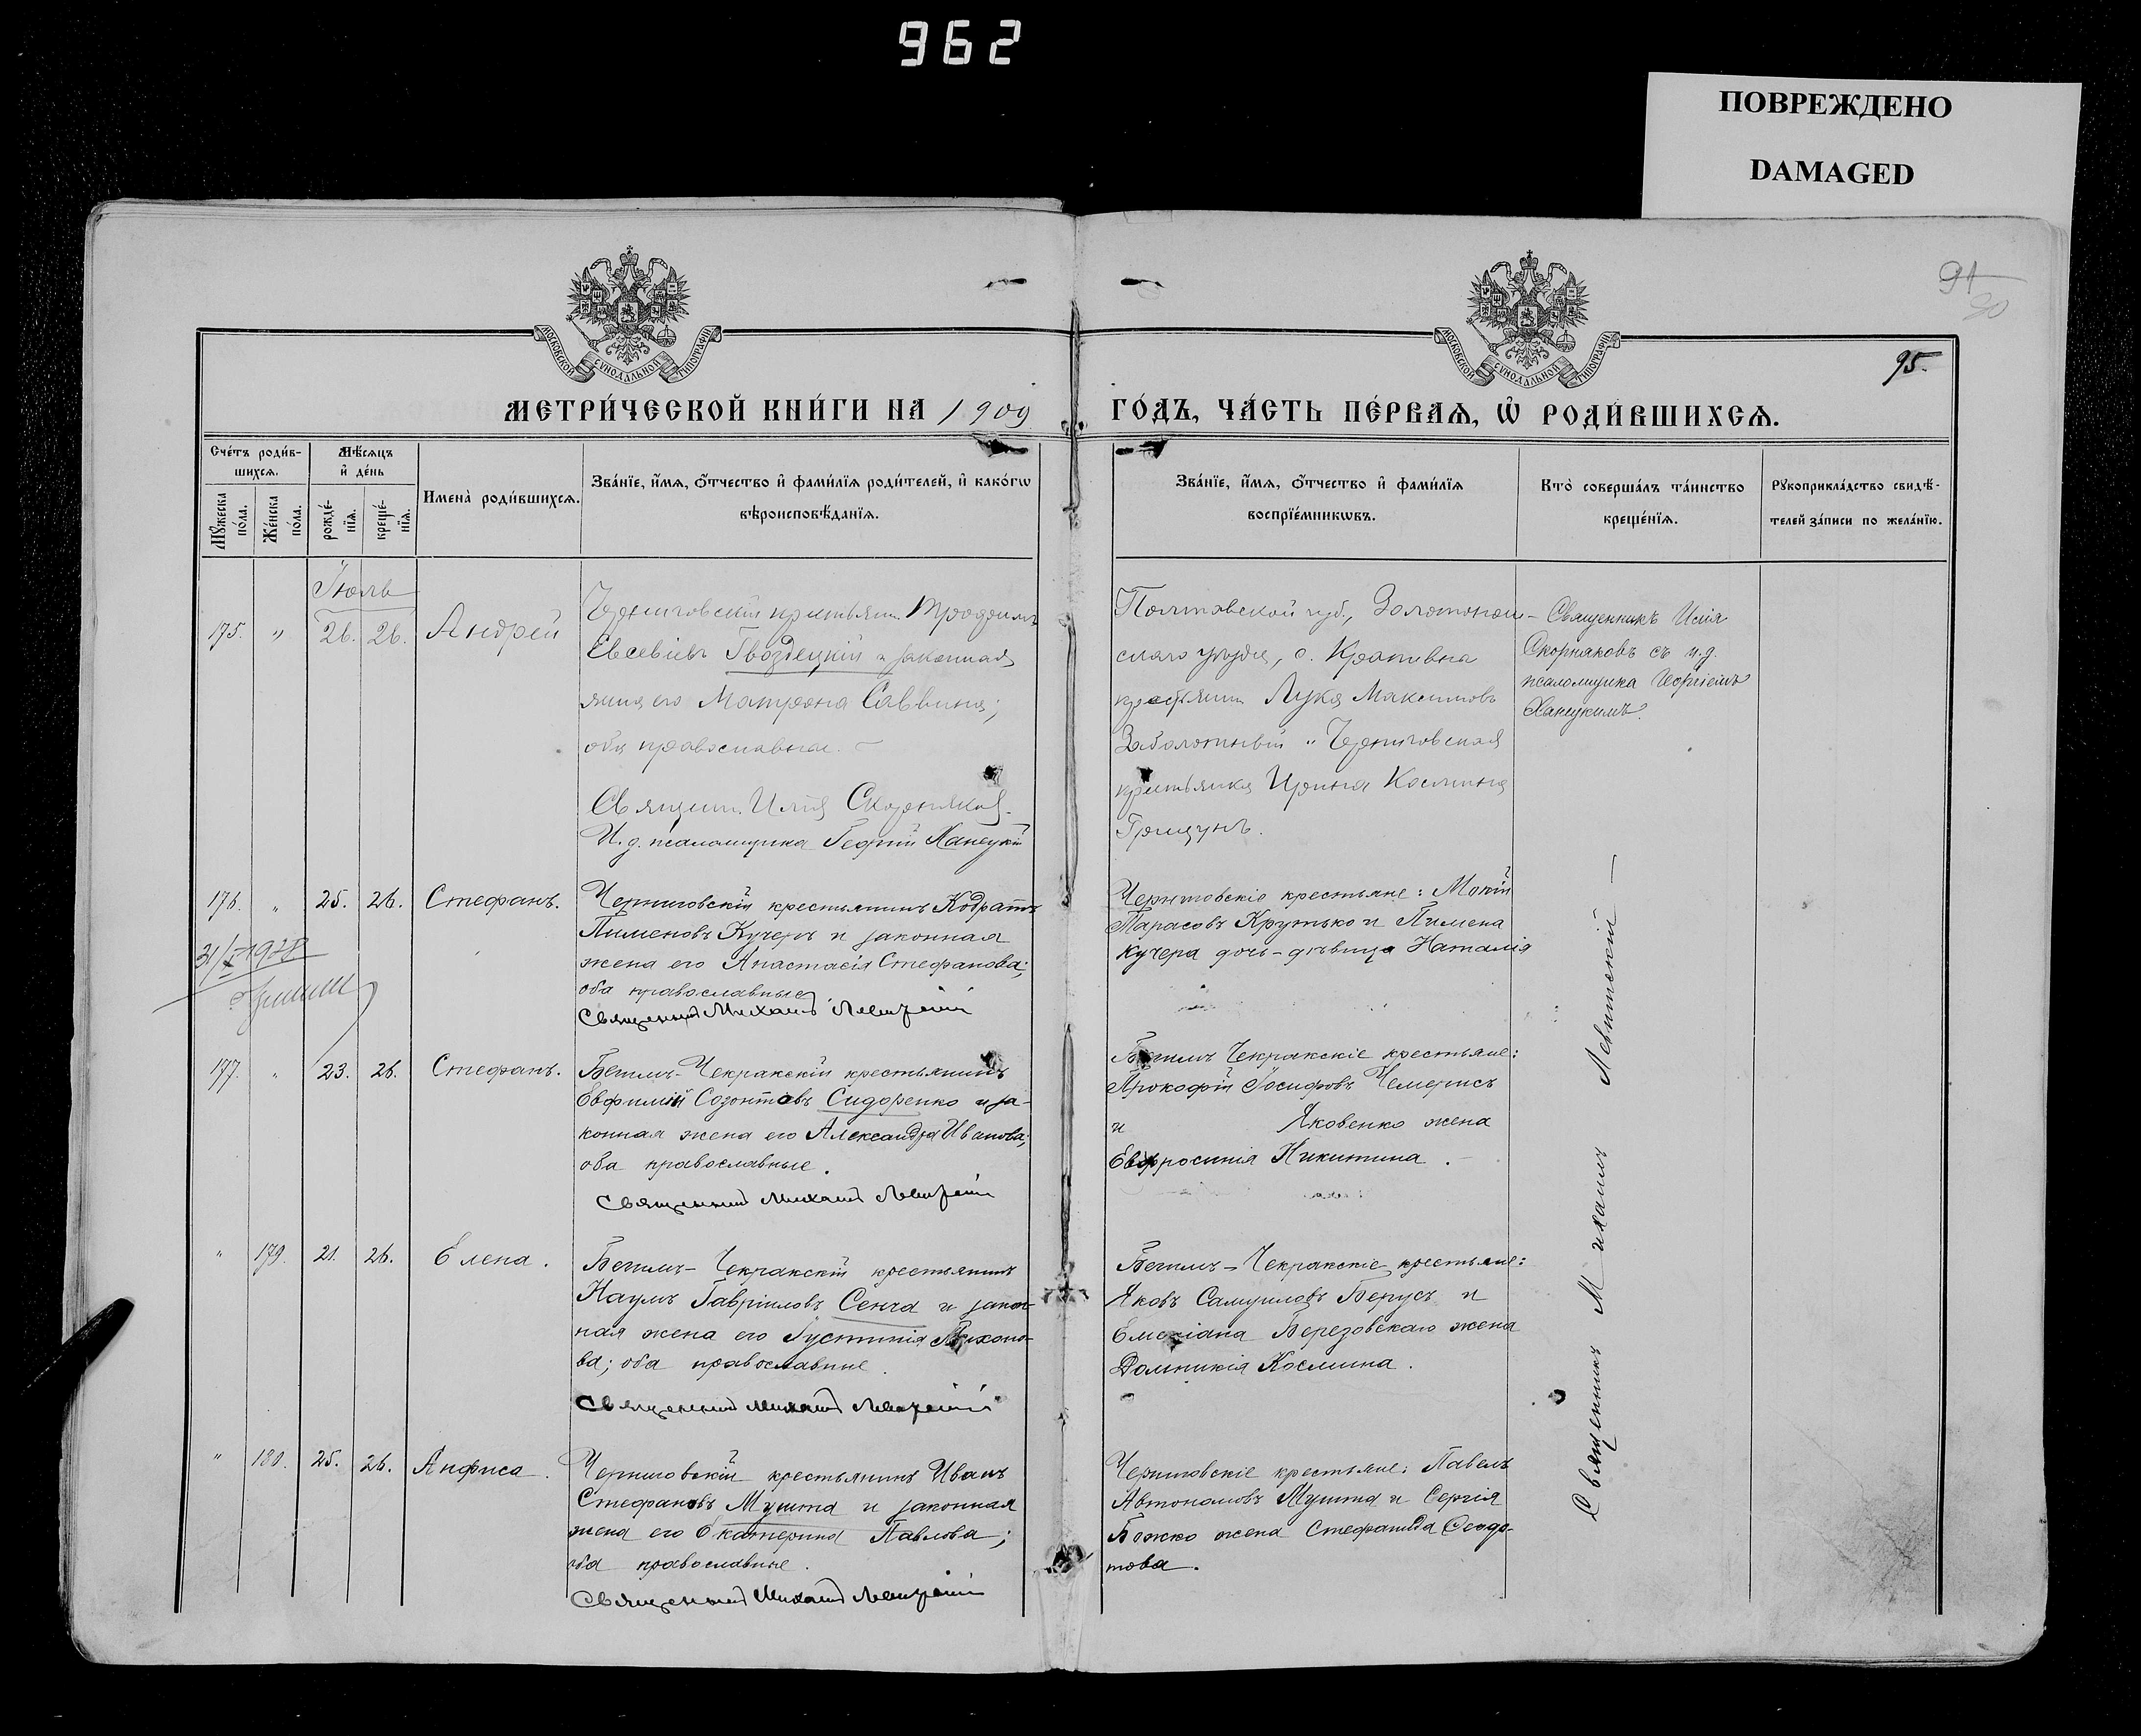 962
ПОВРЕЖДЕНО
DAMAGED
91
90
95.
МОСКОВСКОЙ СѴНОДАЛЬНОЙ ТИПОГРАФІИ
МОСКОВСКОЙ СѴНОДАЛЬНОЙ ТИПОГРАФІИ
МЕТРИ́ЧЕСКОЙ КНИ́ГИ НА 1909
ГО́ДЪ, ЧА́СТЬ ПЕ́РВАѦ, Ѽ РОДИ́ВШИХСѦ.
Счéтъ роди́в-
шихсѧ.
Мꙋ́жеска
по́ла.
Же́нска
по́ла.
Мѣ́сѧцъ
и҆ де́нь
рожде́-
нїѧ.
креще́-
нїѧ.
Имена̀ роди́вшихсѧ.
Зва́нїе, и҆́мѧ, ѻ҆́тчество и҆ фами́лїѧ роди́телей, и҆ како́гѡ
вѣроисповѣ́данїѧ.
Зва́нїе, и҆́мѧ, ѻ҆́тчество и҆ фами́лїѧ
воспрїе́мникѡвъ.
Кто̀ соверша́лъ та́инство
креще́нїѧ.
Рꙋкоприкла́дство свидѣ́-
телей за́писи по жела́нїю.
Іюль
175. " 26. 26. Андрей
Черниговскій крестьянин Трофимъ
Евсевіевъ Гвоздецкій и законная
жена его Матрона Саввина;
оба православные.
Священ. Илія Скорняковъ.
И. д. псаломщика Георгій Ханецкій
Полтавской губ., Золотонош-
скаго уѣзда, с. Крапивна
крестьянин Лука Максимовъ
Заболотный и Черниговская
крестьянка Ирина Космина
Грищунъ.
Священникъ Илія
Скорняковъ съ и. д.
псаломщика Георгіемъ
Ханецкимъ.
176. " 25. 26. Стефанъ.
Черниговскій крестьянинъ Кодратъ
Пименовъ Кучеръ и законная
жена его Анастасія Стефанова;
оба православные
Священникъ Михаилъ Левитскій
Черниговскіе крестьяне: Мокій
Тарасовъ Крутько и Пимена
Кучера дочь-дѣвица Наталія
31/I 1928
177. " 23. 26. Стефанъ.
Бегимъ-Чекракскій крестьянинъ
Евфимій Созонтовъ Сидоренко и за-
конная жена его Александра Иванова;
оба православные.
Священникъ Михаилъ Левитскій
Бегимъ Чекракскіе крестьяне:
Прокофій Іосифовъ Чемерисъ
и Яковенко жена
Евфросинія Никитина.
" 179. 21. 26. Елена.
Бегимъ-Чекракскій крестьянинъ
Наумъ Гавріиловъ Сенча и закон-
ная жена его Іустинія Тихоно-
ва; оба православные.
Священникъ Михаилъ Левитскій
Бегимъ-Чекракскіе крестьяне:
Яковъ Самуиловъ Берусъ и
Емеліана Березовскаго жена
Домникія Космина.
" 180. 25. 26. Анфиса.
Черниговскій крестьянинъ Иванъ
Стефановъ Мушта и законная
жена его Екатерина Павлова;
оба православные.
Священникъ Михаилъ Левитскій
Черниговскіе крестьяне: Павелъ
Автономовъ Мушта и Сергія
Божко жена Стефанида Ѳеодо-
това.
Священникъ Михаилъ Левитскій